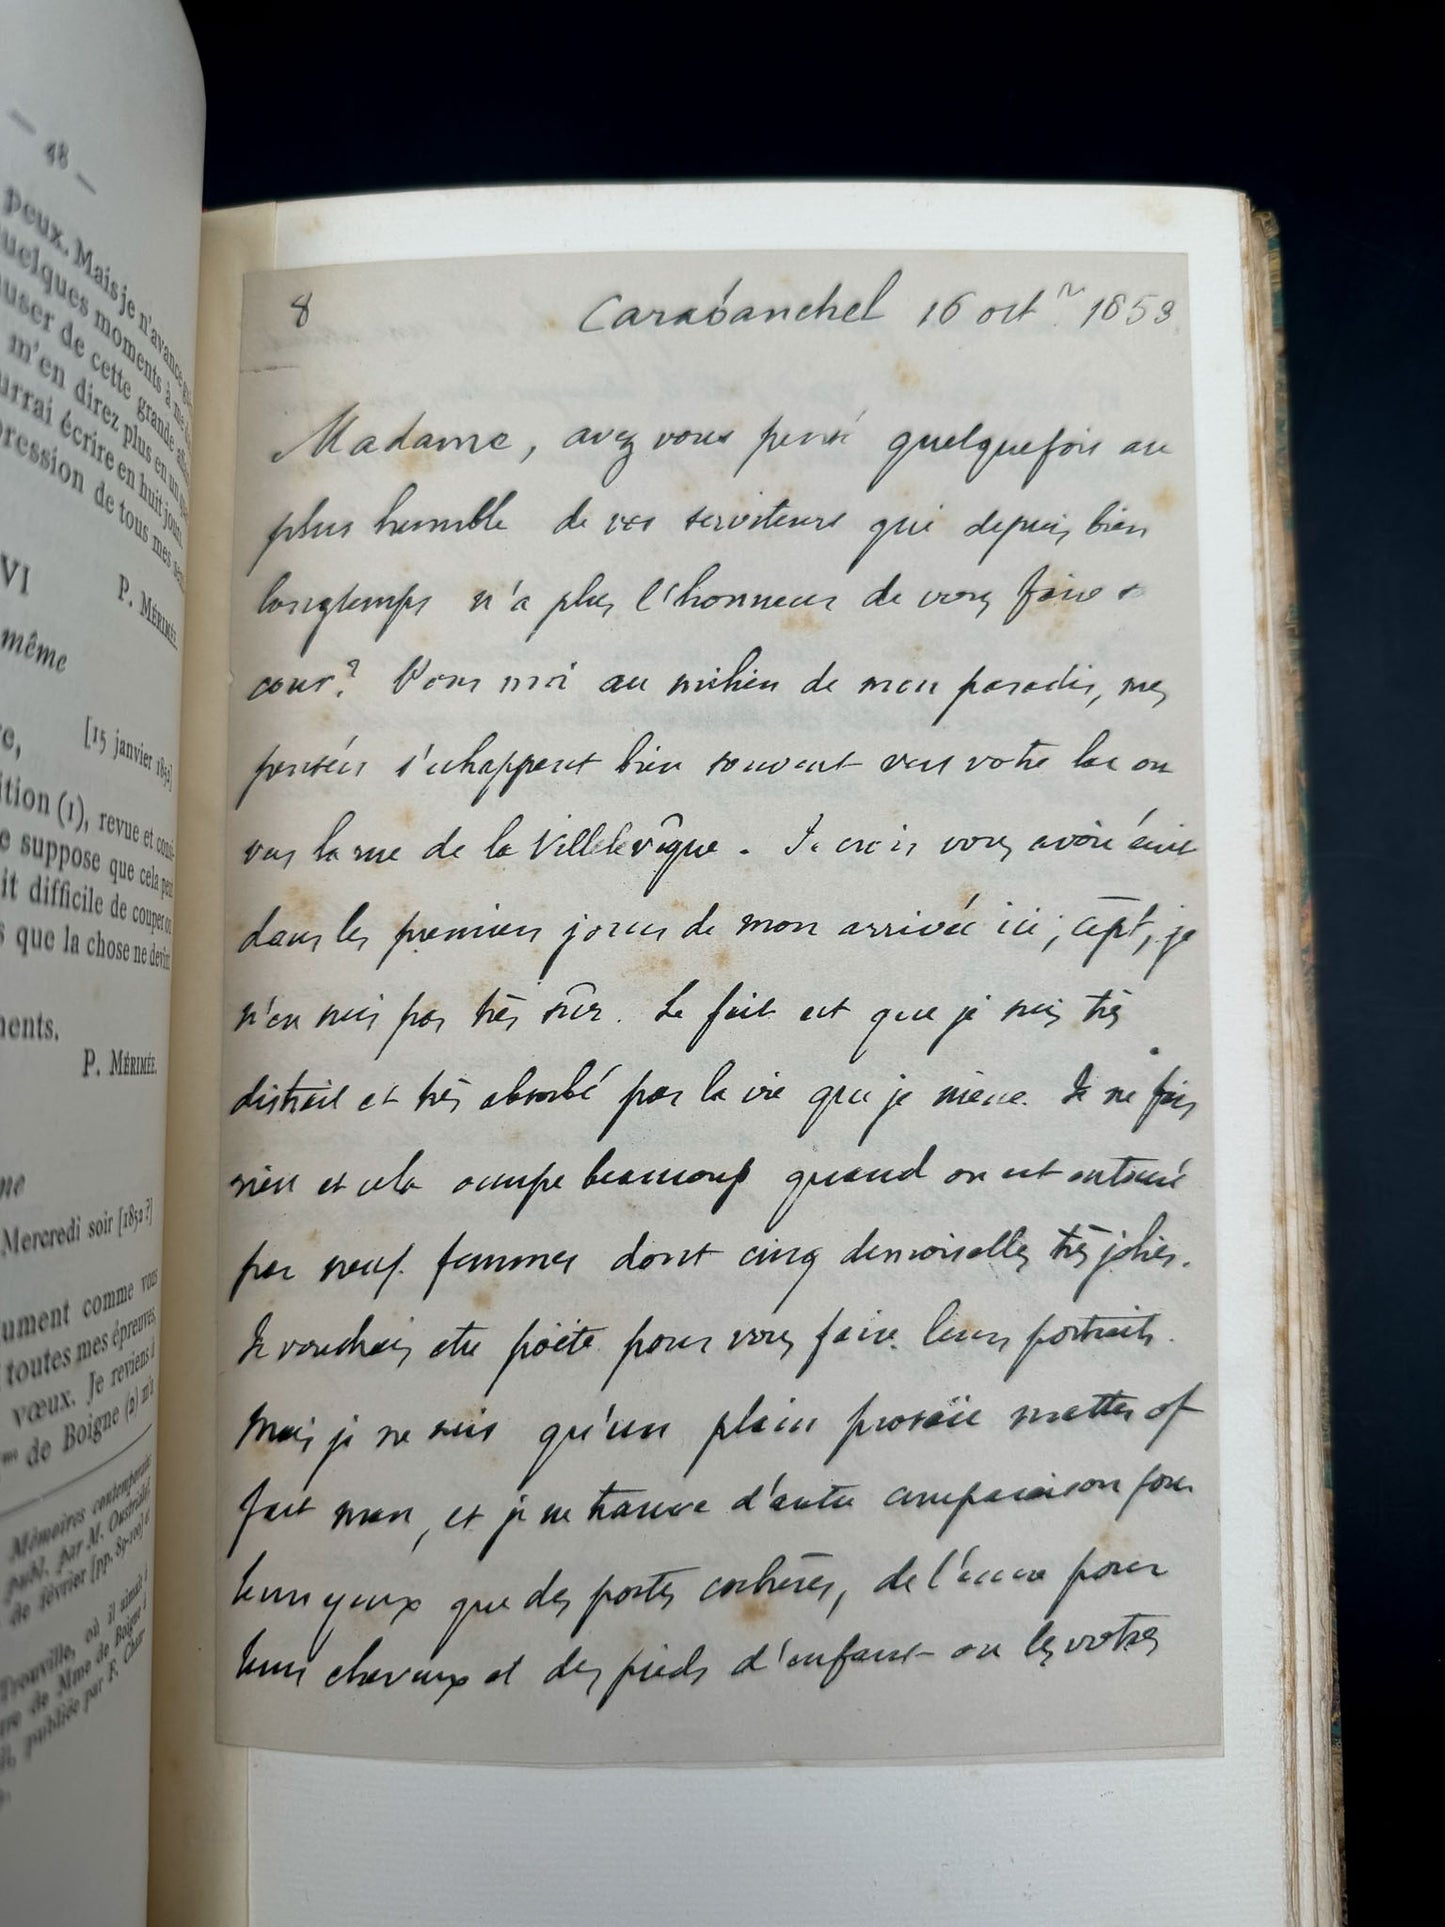 — 48 —
peux. Mais je n'avance
quelques moments à
user de cette grande
m'en direz plus en un
urrai écrire en huit jours.
pression de tous mes
P. MÉRIMÉE.
VI
même
[15 janvier 1852]
re,
ition (1), revue et
e suppose que cela peut
it difficile de couper ou
s que la chose ne devînt
ments.
P. MÉRIMÉE.
me
Mercredi soir [1852 ?]
ument comme vous
toutes mes épreuves
vœux. Je reviens à
me de Boigne (2) m'a
Mémoires
publ. par M.
de février [pp. 89-100]
Trouville, où il aimait
de Mme de Boigne
publiée par F.
8
Carabanchel 16 oct.re 1853
Madame, avez vous pensé quelquefois au
plus humble de vos serviteurs qui depuis bien
longtemps n'a plus l'honneur de vous faire sa
cour? Pour moi au milieu de mon paradis, mes
pensées s'échappent bien souvent vers votre lac ou
vers la rue de la Villelevêque. Je crois vous avoir écrit
dans les premiers jours de mon arrivée ici, cept, je
n'en suis pas très sûr. Le fait est que je suis très
distrait et très absorbé par la vie que je mène. Je ne fais
rien et cela occupe beaucoup quand on est entouré
par neuf femmes dont cinq demoiselles très jolies.
Je voudrais etre poëte pour vous faire leurs portraits.
Mais je ne suis qu'un plain prosaïc matter of
fact man, et je ne trouve d'autre comparaison pour
leurs yeux que des portes cochères, de l'encre pour
leurs cheveux et des pieds d'enfant ou les votres